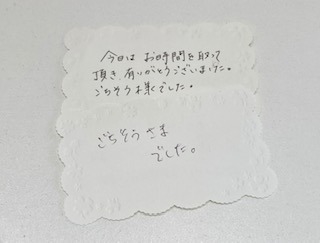 今日は お時間を取って
頂き、有りがとうございました。
ごちそう様でした。
ごちそうさま
でした。